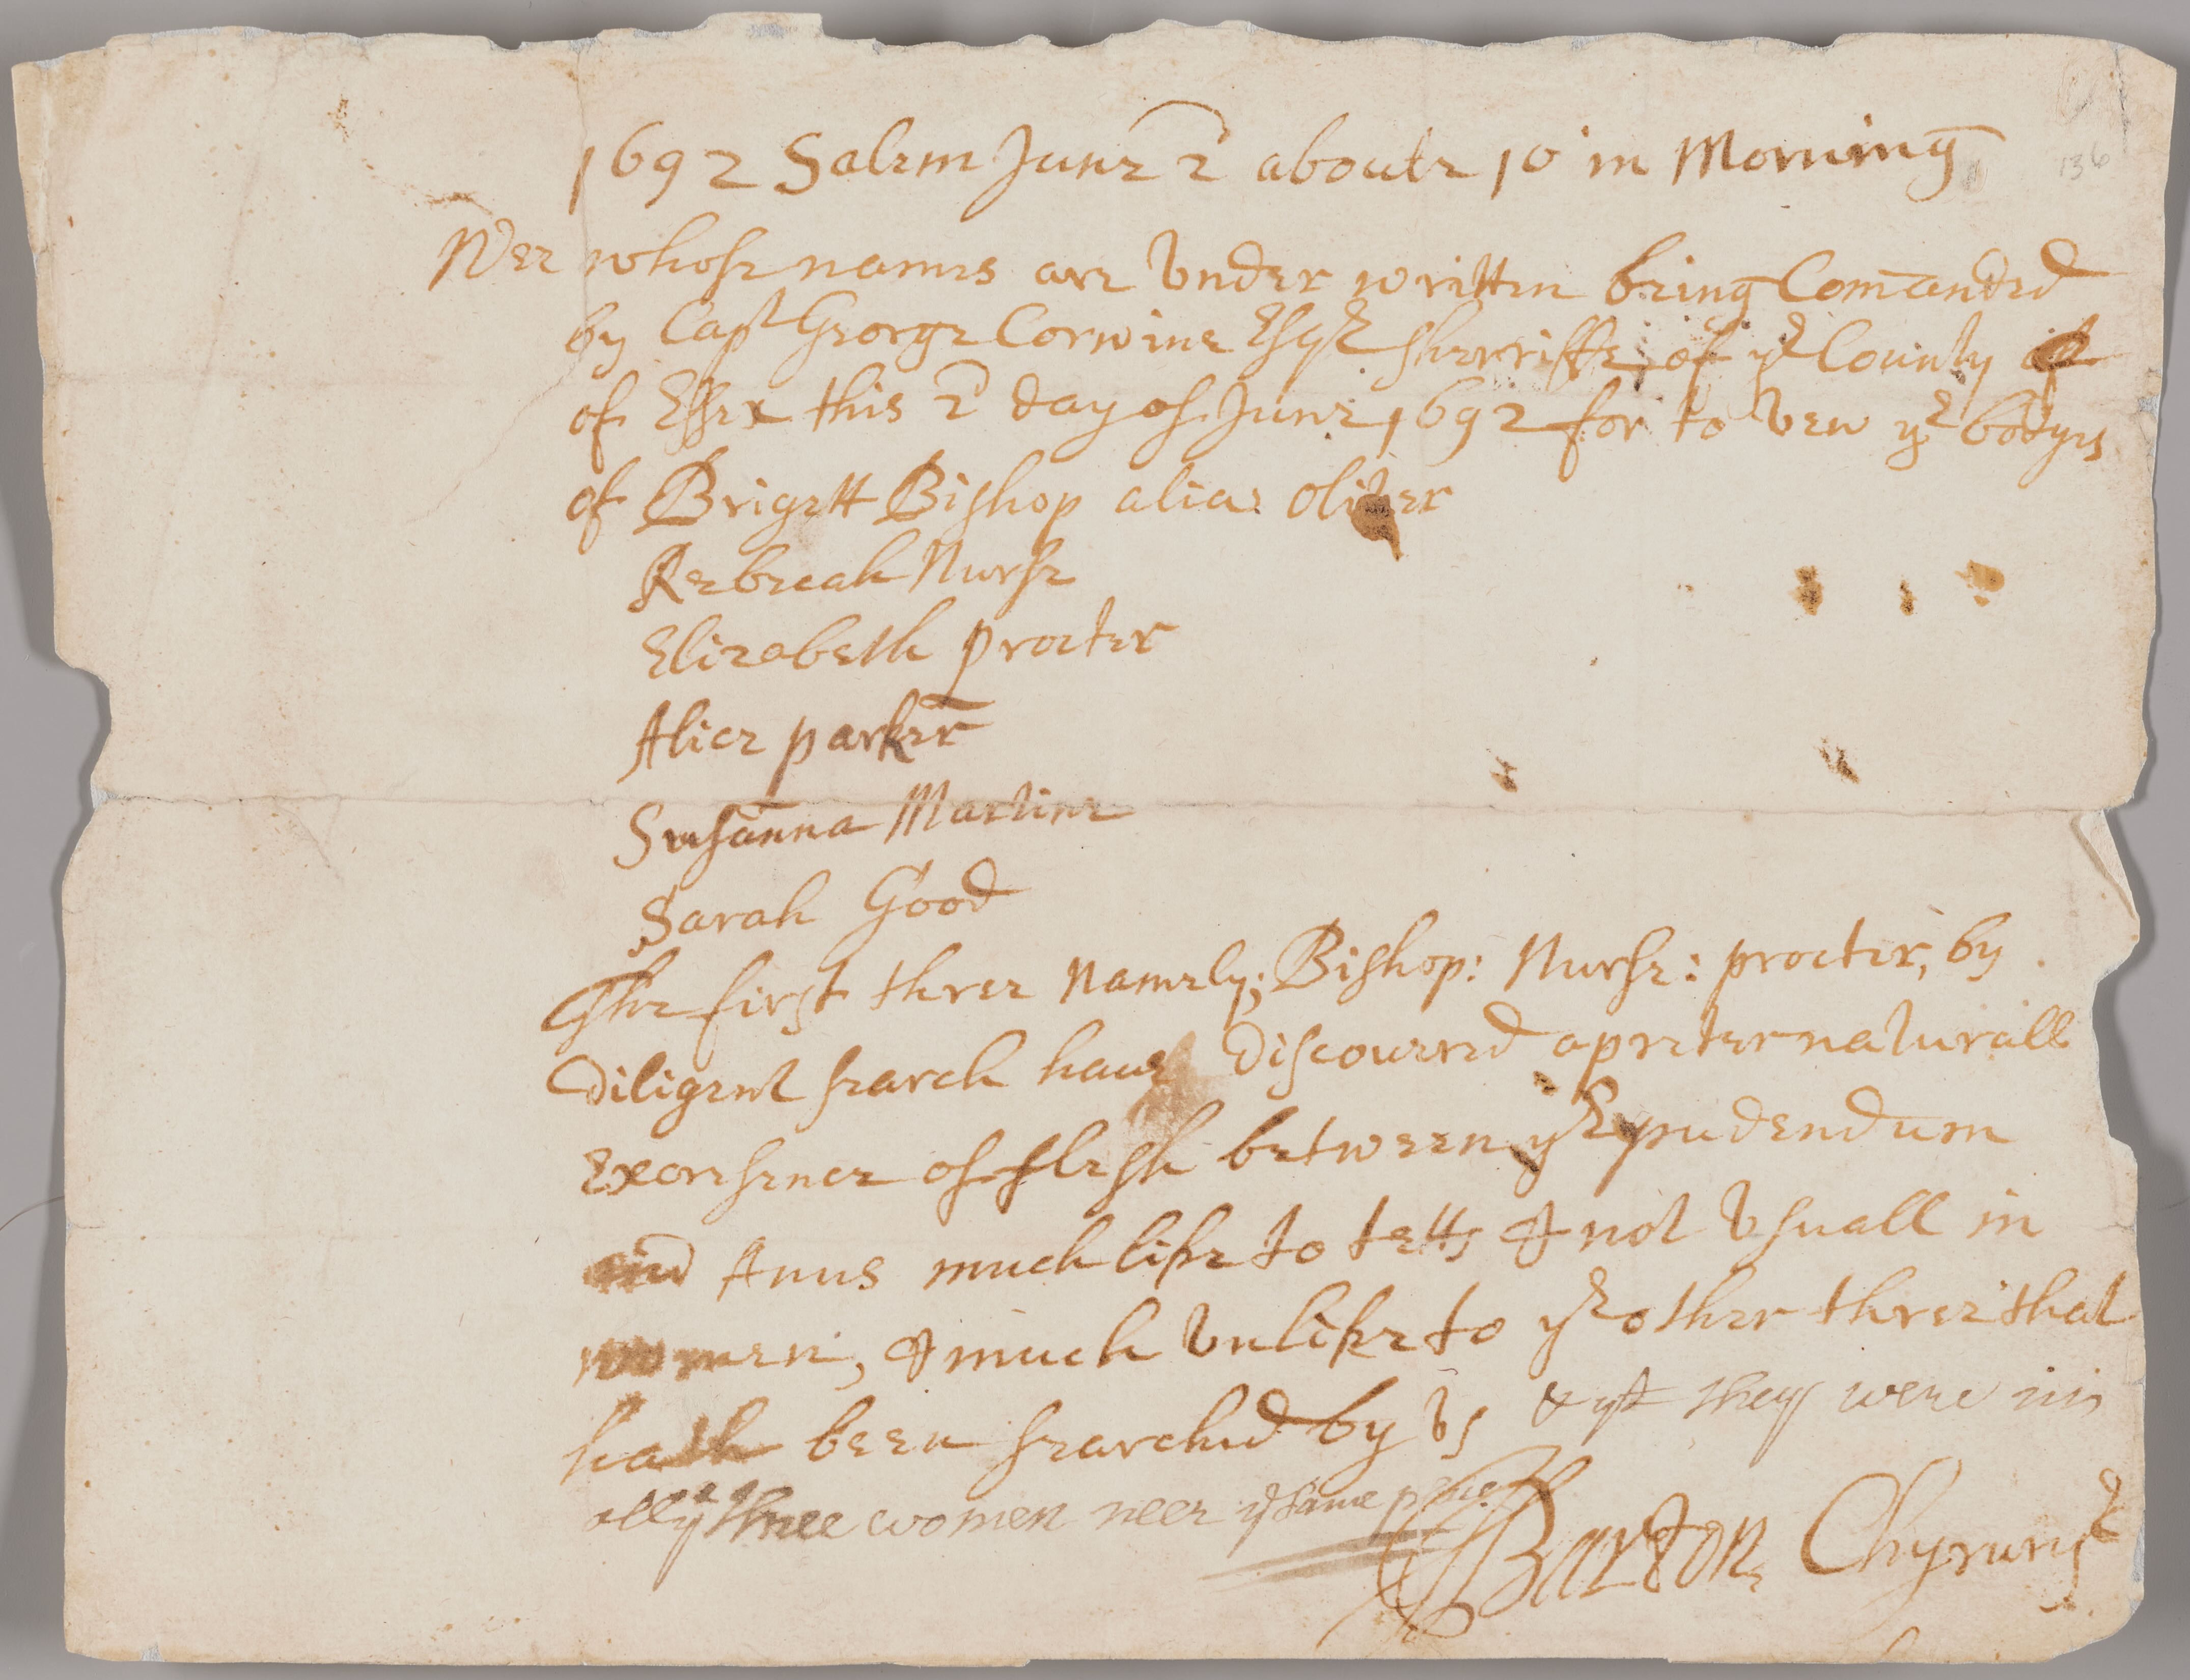 1692 Salem June 2 aboute 10 in Morning
Wee whose names are Vnder written being Comanded
by Capt George Corwine Esqr Sherriffe of ye County of
of Essex this 2 day of June 1692 for to Vew ye bodyes
of Brigett Bishop alias oliver
Rebecah Nurse
Elizabeth procter
Alice parker
Susanna Martine
Sarah Good
The first three Namely; Bishop: Nurse: procter, by
Diligent search haue Discouered a preternaturall
Excresence of flesh between ye pudendum
and Anus much like to tetts & not Vsuall in
women, & much Vnlike to ye other three that
hath been searched by Vs & yt they were in
all ye three women neer ye same place
JBarton Chyrurgn
136